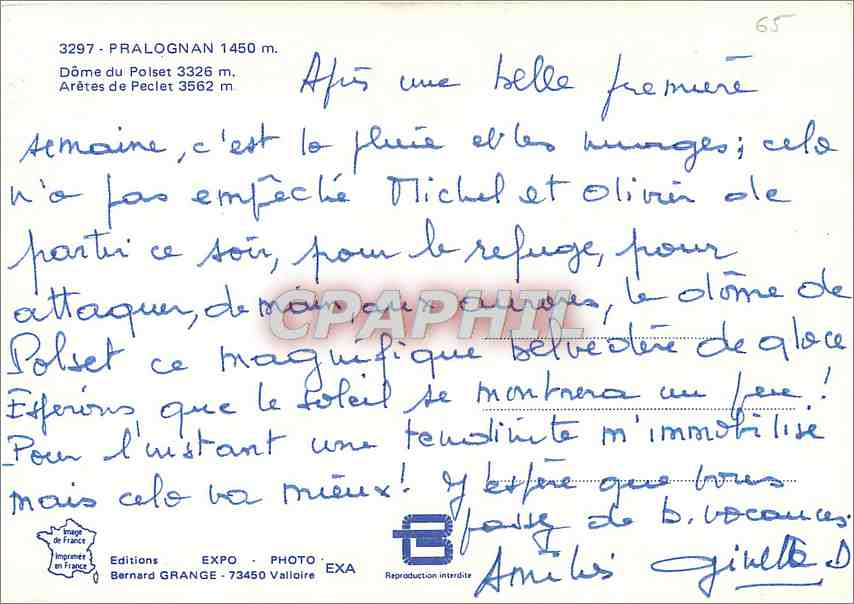 65
3297 - PRALOGNAN 1450 m.
Dôme du Polset 3326 m.
Arêtes de Peclet 3562 m
Après une belle première
semaine, c'est la pluie et les nuages ; cela
n'a pas empêché Michel et Olivier de
partir ce soir, pour le refuge, pour
attaquer, demain, aux aurores, le dôme de
CPAPHIL
Polset ce magnifique belvédère de glace
Espérons que le soleil se montrera un peu !
Pour l'instant une tendinite m'immobilise
mais cela va mieux ! J'espère que vous
passez de b. vacances.
Amitiés Ginette D
Image de France
Imprimée en France
Editions EXPO - PHOTO - EXA
Bernard GRANGE - 73450 Valloire
Reproduction interdite